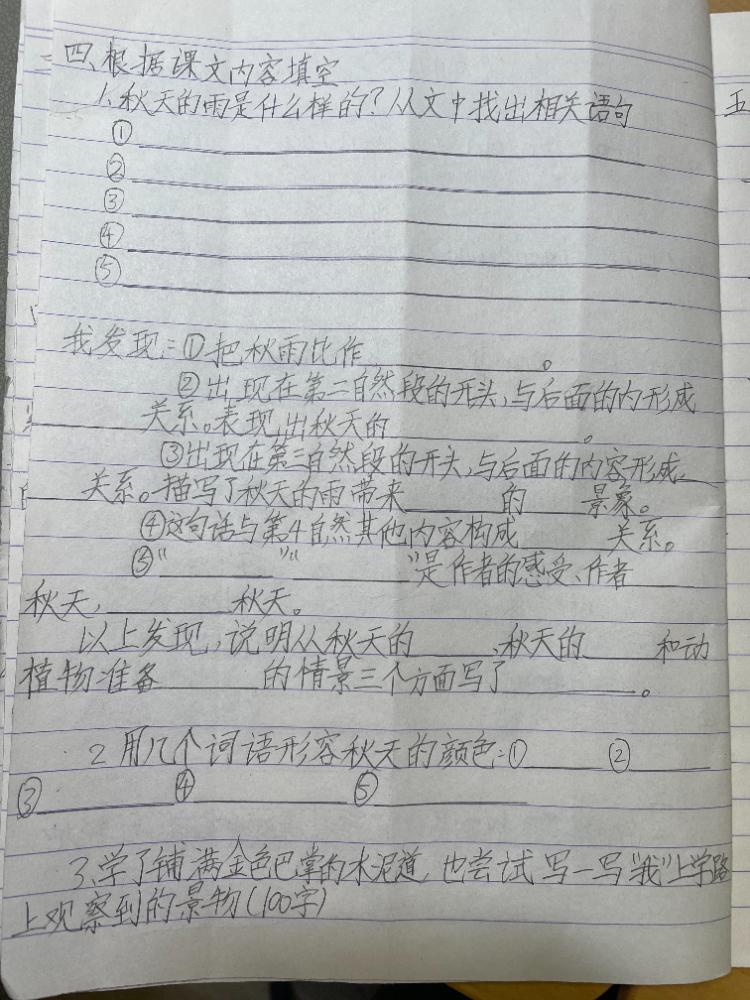 四、根据课文内容填空
1.秋天的雨是什么样的?从文中找出相关语句
①
②
③
④
⑤
我发现:①把秋雨比作____。
②出现在第二自然段的开头,与后面的内形成
____关系。表现出秋天的____。
③出现在第三自然段的开头,与后面的内容形成
____关系。描写了秋天的雨带来____的____景象。
④这句话与第4自然其他内容构成____关系。
⑤"____""____"是作者的感受、作者
秋天,____秋天。
以上发现,说明从秋天的____、秋天的____和动
植物准备____的情景三个方面写了____。
2 用几个词语形容秋天的颜色:①____②____
③____④____⑤____
3、学了铺满金色巴掌的水泥道,也尝试写一写"我"上学路
上观察到的景物(100字)
五